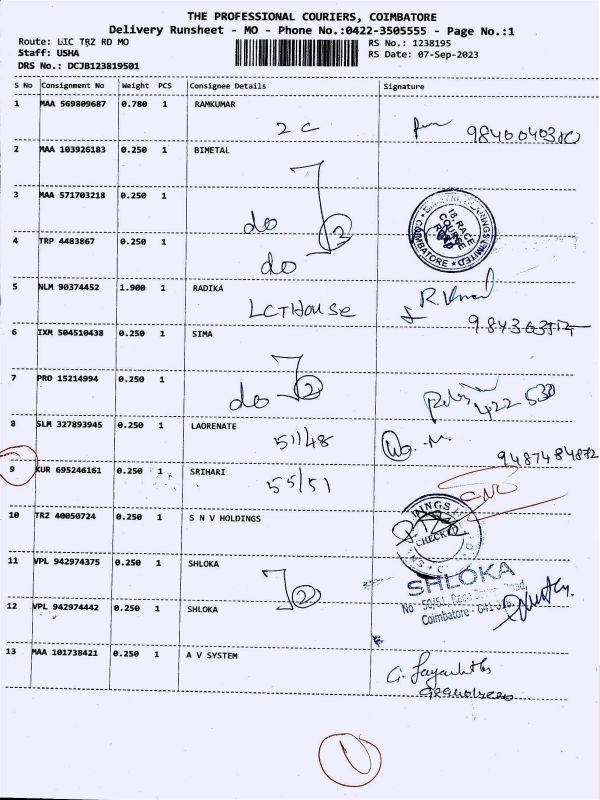 THE PROFESSIONAL COURIERS, COIMBATORE
Delivery Runsheet - MO - Phone No.:0422-3505555 - Page No.:1
Route: LIC TRZ RD MO
Staff: USHA
DRS No.: DCJB123819501
RS No.: 1238195
RS Date: 07-Sep-2023
S No Consignment No Weight PCS Consignee Details Signature
1 MAA 569809687 0.780 1 RAMKUMAR
2 C
2 MAA 103926183 0.250 1 BIMETAL
3 MAA 571703218 0.250 1
do
2
4 TRP 4483867 0.250 1
do
18, RACE COURSE ROAD
COIMBATORE
5 NLM 90374452 1.900 1 RADIKA
LCTHouse
6 IXM 504510438 0.250 1 SIMA
7 PRO 15214994 0.250 1
do 2
422 530
8 SLM 327893945 0.250 1 LAORENATE
51/48
9487484872
9 KUR 695246161 0.250 1 SRIHARI
55/51
10 TRZ 40050724 0.250 1 S N V HOLDINGS
CHECKED
11 VPL 942974375 0.250 1 SHLOKA
2
SHLOKA
No 50/51, Race Course Road,
Coimbatore - 641 018.
12 VPL 942974442 0.250 1 SHLOKA
13 MAA 101738421 0.250 1 A V SYSTEM
1